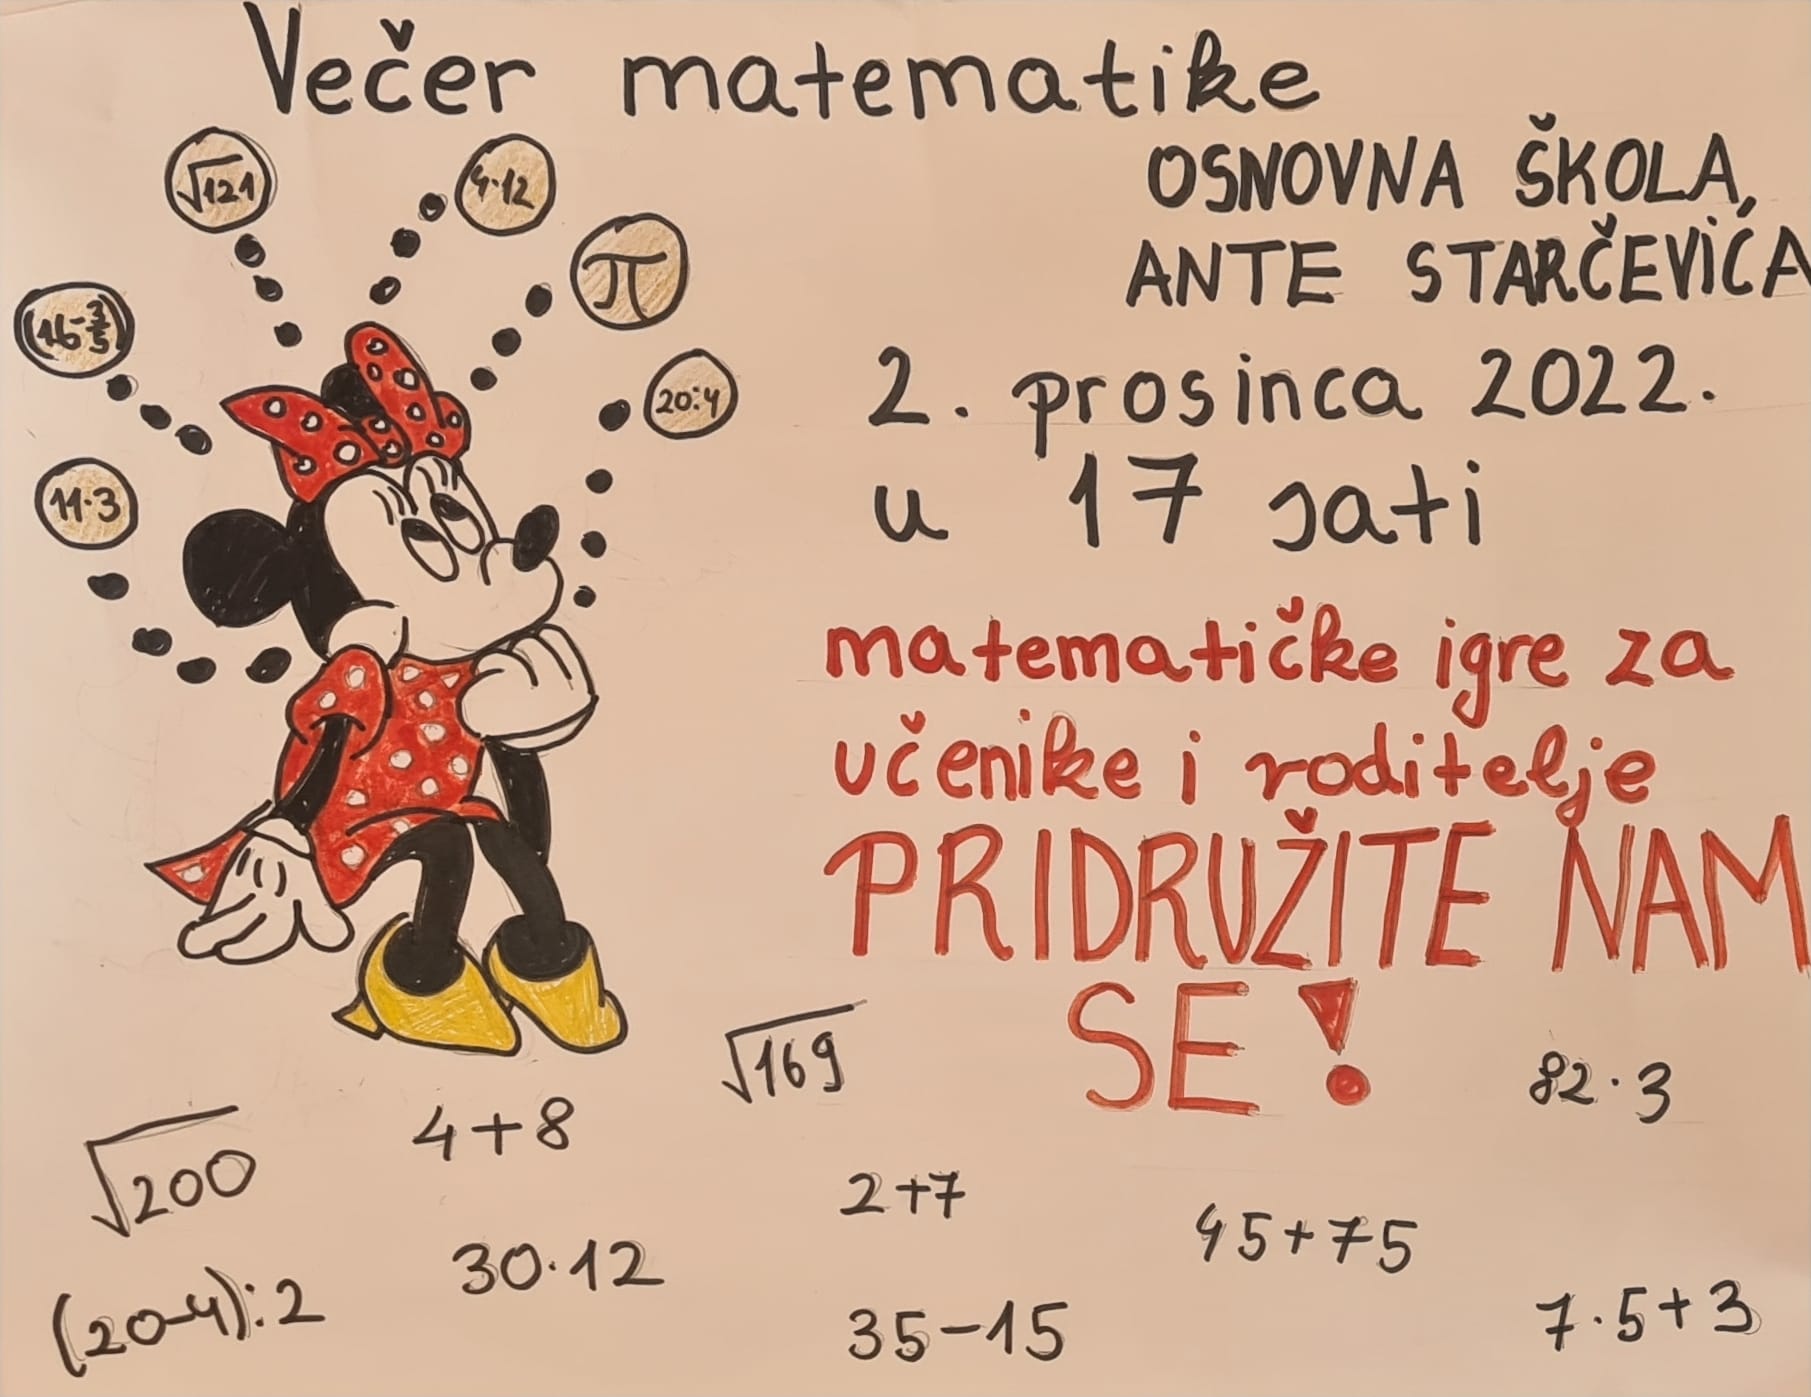 Večer matematike
OSNOVNA ŠKOLA,
ANTE STARČEVIĆA
2. prosinca 2022.
u 17 sati
matematičke igre za
učenike i roditelje
PRIDRUŽITE NAM
SE!
√121
4·12
π
20:4
11·3
√169
82·3
√200
4+8
2+7
45+75
(20-4):2
30·12
35-15
7·5+3